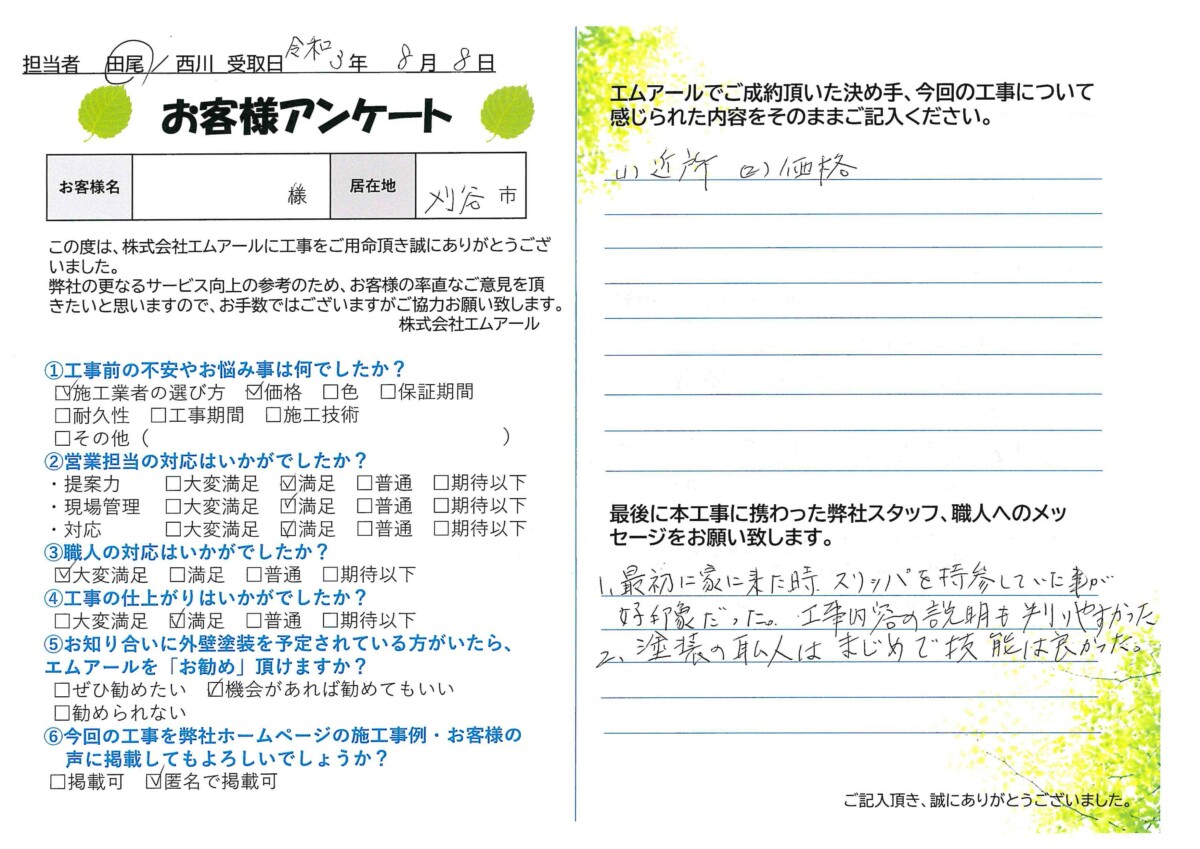 担当者 田尾/西川 受取日 令和3年 8月 8日
お客様アンケート
お客様名 様 居在地 刈谷 市
この度は、株式会社エムアールに工事をご用命頂き誠にありがとうござ
いました。
弊社の更なるサービス向上の参考のため、お客様の率直なご意見を頂
きたいと思いますので、お手数ではございますがご協力お願い致します。
株式会社エムアール
①工事前の不安やお悩み事は何でしたか？
☑施工業者の選び方 ☑価格 □色 □保証期間
□耐久性 □工事期間 □施工技術
□その他（ ）
②営業担当の対応はいかがでしたか？
・提案力 □大変満足 ☑満足 □普通 □期待以下
・現場管理 □大変満足 ☑満足 □普通 □期待以下
・対応 □大変満足 ☑満足 □普通 □期待以下
③職人の対応はいかがでしたか？
☑大変満足 □満足 □普通 □期待以下
④工事の仕上がりはいかがでしたか？
□大変満足 ☑満足 □普通 □期待以下
⑤お知り合いに外壁塗装を予定されている方がいたら、
エムアールを「お勧め」頂けますか？
□ぜひ勧めたい ☑機会があれば勧めてもいい
□勧められない
⑥今回の工事を弊社ホームページの施工事例・お客様の
声に掲載してもよろしいでしょうか？
□掲載可 ☑匿名で掲載可
エムアールでご成約頂いた決め手、今回の工事について
感じられた内容をそのままご記入ください。
(1) 近所 (2) 価格
最後に本工事に携わった弊社スタッフ、職人へのメッ
セージをお願い致します。
1、最初に家に来た時、スリッパを持参していた事が
好印象だった。工事内容の説明も判りやすかった
2、塗装の職人はまじめで技能は良かった。
ご記入頂き、誠にありがとうございました。